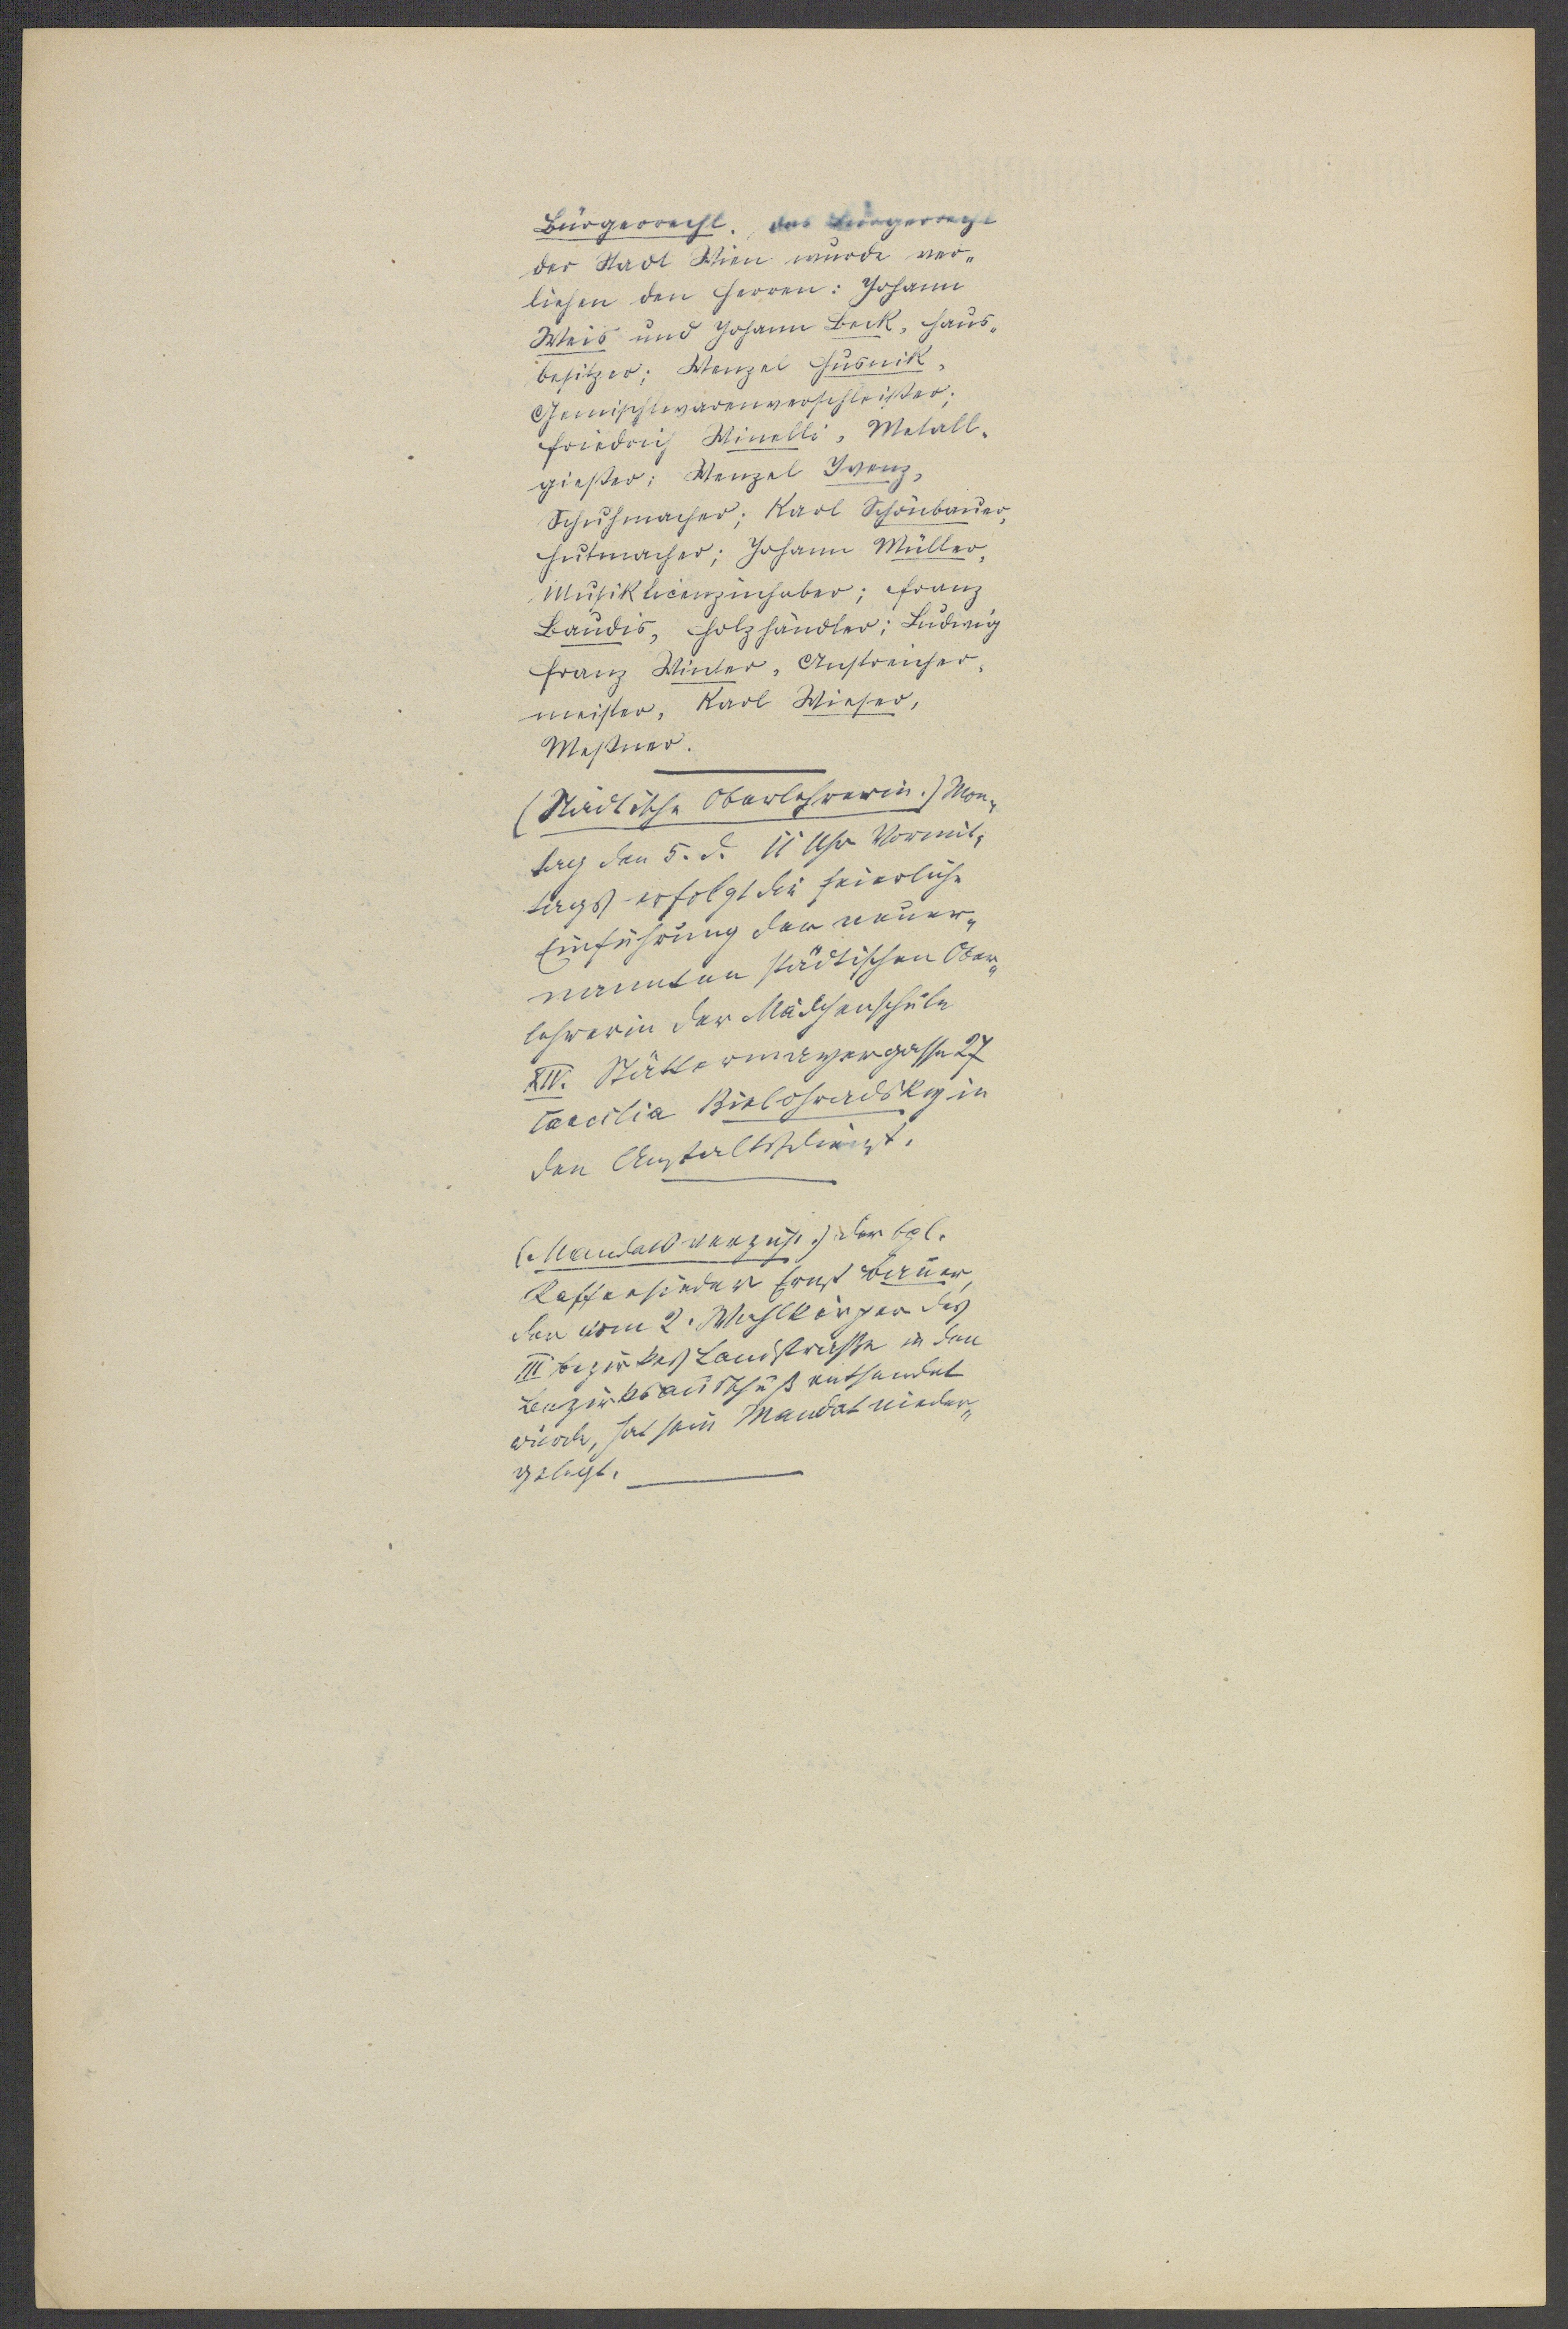 Bürgerrecht. Das Bürgerrecht
der Stadt Wien wurde ver-
liehen den Herren: Johann
Weis und Johann Beck, Haus-
besitzer; Wenzel Husnik,
Gemischtwarenverschleißer;
Friedrich Winelli, Metall-
gießer; Wenzel Ivenz,
Schuhmacher; Karl Schönbauer,
Hutmacher; Johann Müller,
Musiklicenzinhaber; Franz
Baudis, Holzhändler; Ludwig
Franz Winter, Anstreicher-
meister, Karl Wieser,
Meßner.
(Städtische Oberlehrerin.) Mon-
tag den 5. d. 11 Uhr Vormit-
tags erfolgt die feierliche
Einführung der neuer-
nannten städtischen Ober-
lehrerin der Mädchenschule
XIV. Stättermayergasse 27
Caecilia Bielohradsky in
den Anstaltsdienst.
(Mandatsverzicht.) Der bgl.
Kaffeesieder Ernst Bauer,
der vom 2. Wahlkörper des
III Bezirkes Landstraße in den
Bezirksausschuß entsendet
wurde, hat sein Mandat nieder-
gelegt.